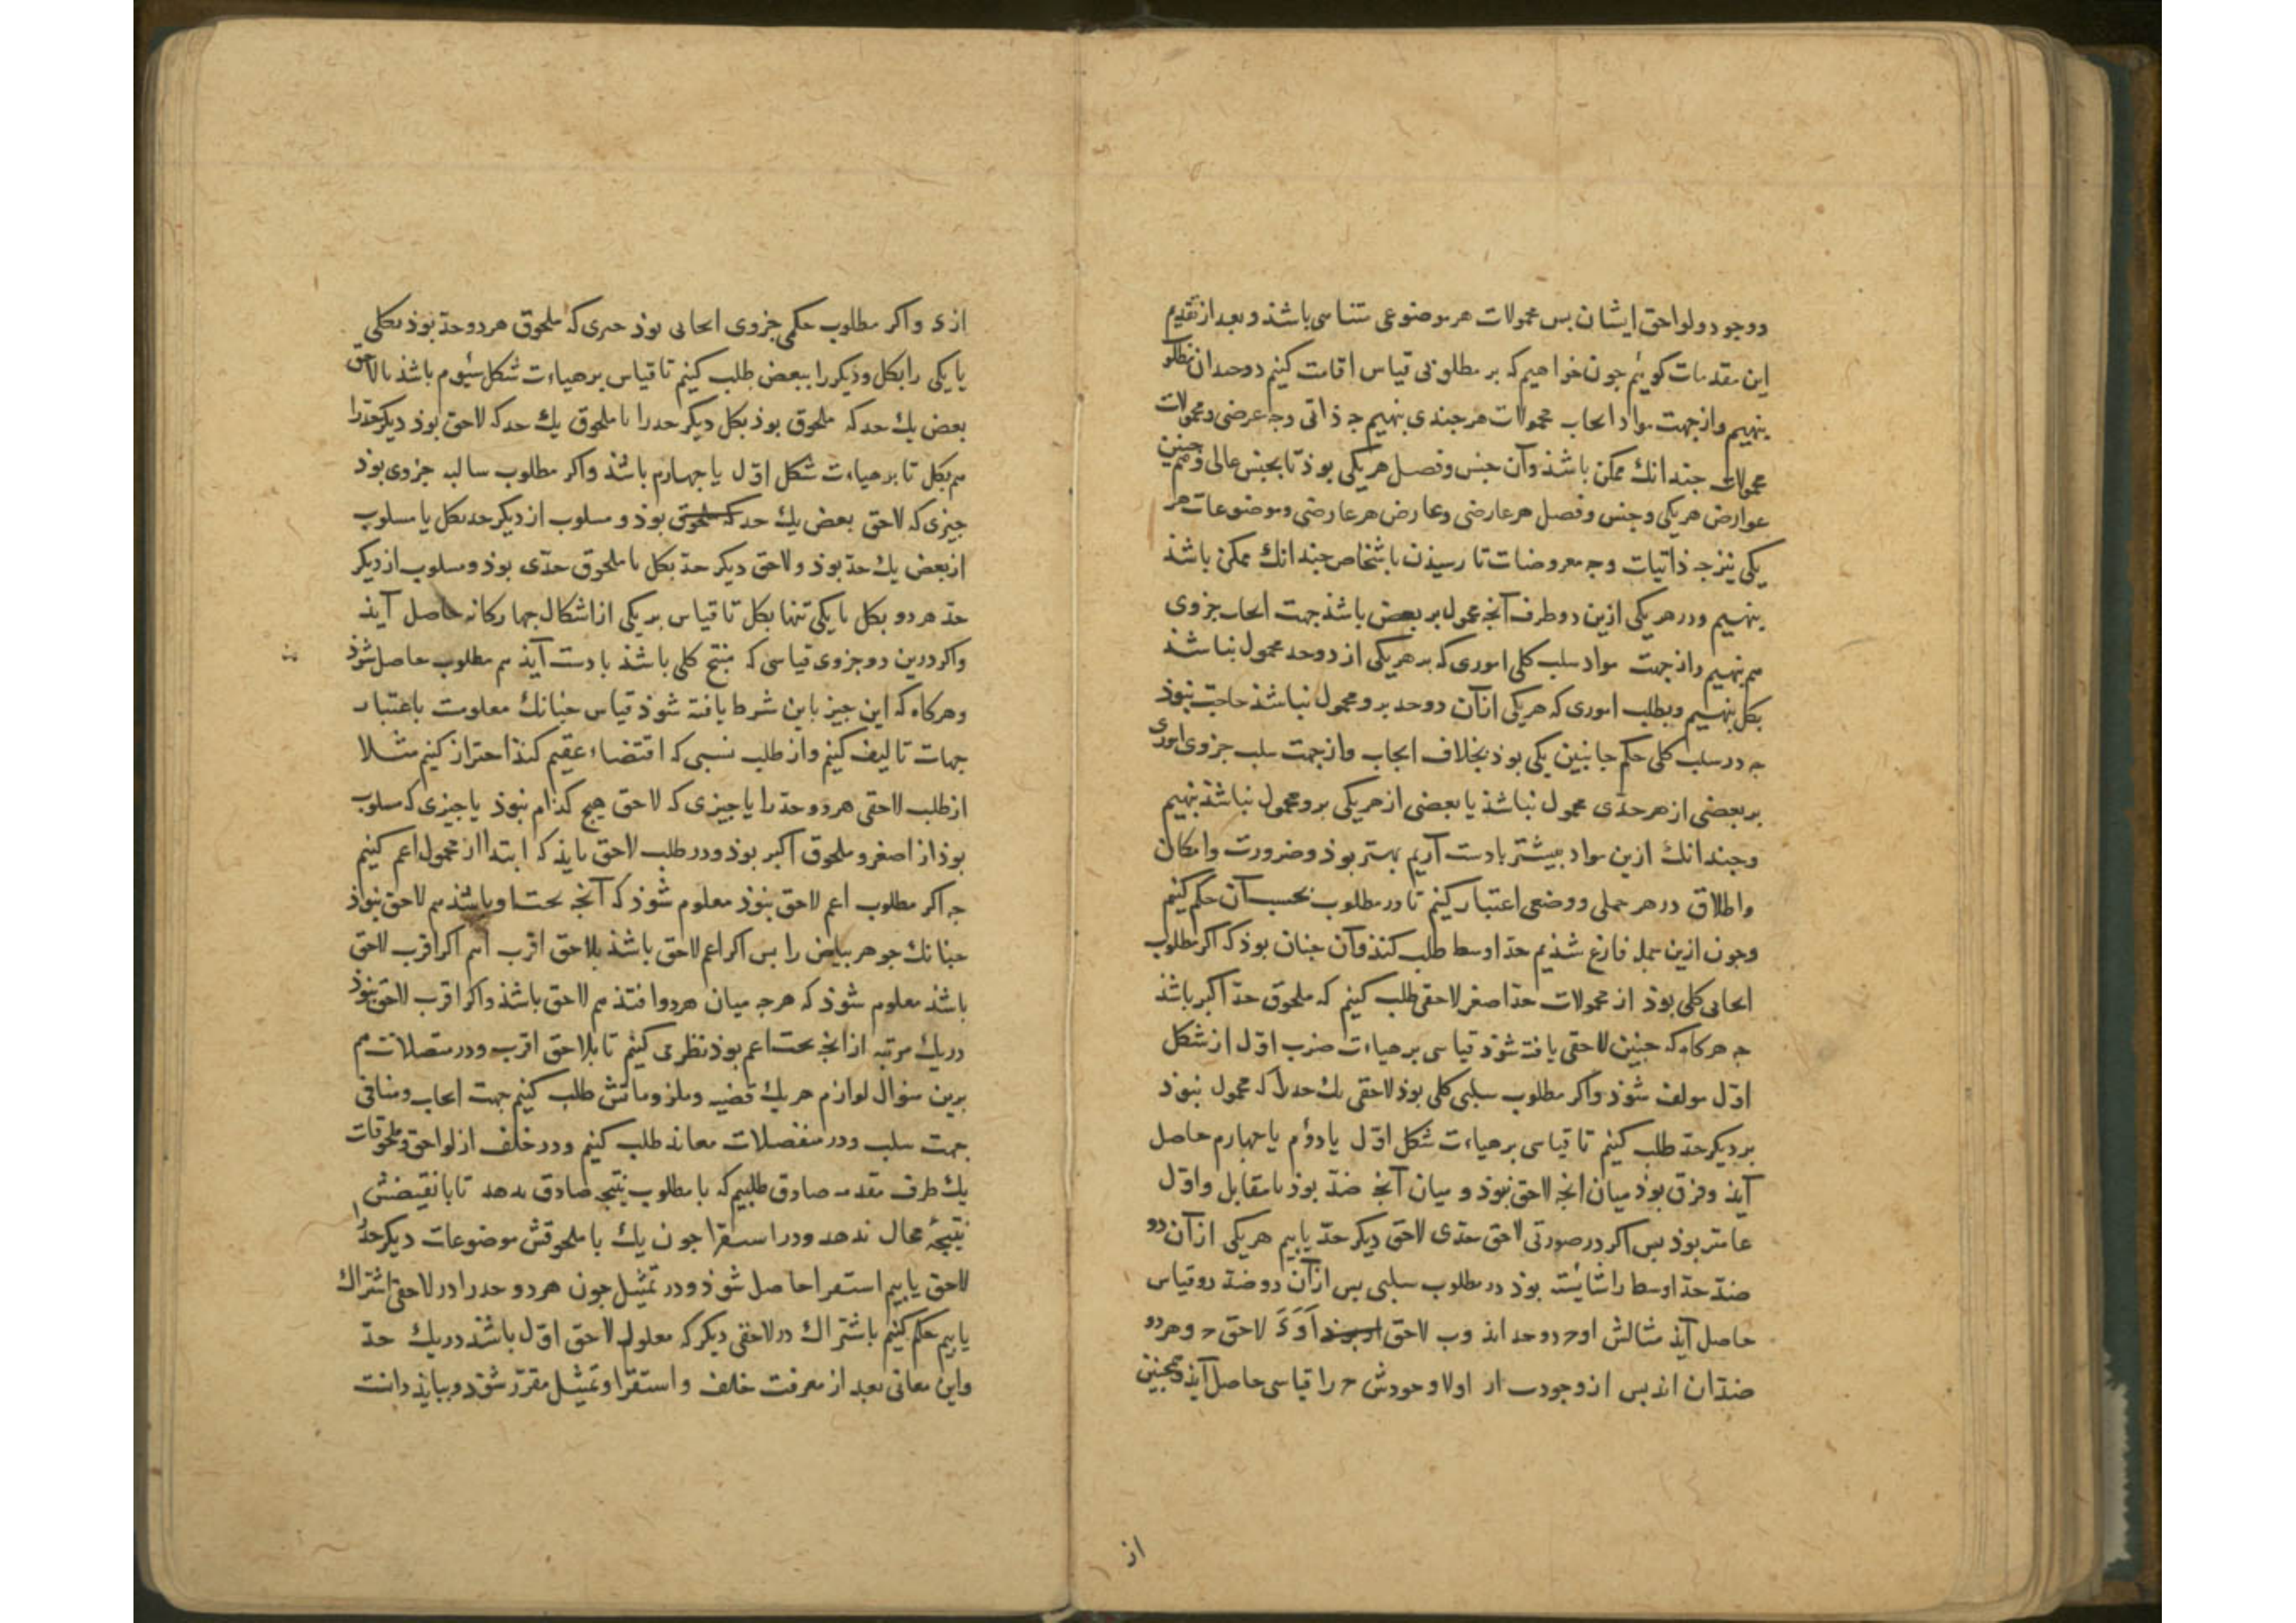 ووجود ولواحق ایشان بس محمولات هر موضوعی متناهی باشذ و بعد از تقدیم
این مقدمات کوئیم جون خواهیم که بر مطلوبی قیاس اقامت کنیم دو حد آن مطلو
بنهیم و از جهت مواد ایجاب محمولات هر جندی بنهیم جه ذاتی وجه عرضی و محمولات
محمولات جندانك ممکن باشذ وآن جنس وفصل هر یکی بوذ تا بجنس عالی وهم جنین
عوارض هر یکی وجنس وفصل هر عارضی وعارض هر عارضی وموضوعات هر
یکی نیز جه ذاتیات وجه معروضات تا رسیذن باشخاص جندانك ممکن باشذ
بنهیم ودر هر یکی ازین دو طرف آنجه محمول بر بعض باشذ جهت ایجاب جزوی
هم بنهیم واز جهت مواد سلب کلی اموری که بر هر یکی از دو حد محمول نباشذ
بکل بنهیم وبطلب اموری که هر یکی ازآن دو حد برو محمول نباشذ حاجت نبوذ
جه در سلب کلی حکم جانبین یکی بوذ بخلاف ایجاب واز جهت سلب جزوی اموری
بر بعضی از هر حدّی محمول نباشذ یا بعضی از هر یکی برو محمول نباشذ بنهیم
وجندانك ازین مواد بیشتر بادست آریم بهتر بوذ وضرورت وامکان
واطلاق در هر حملی ووضعی اعتبار کنیم تا در مطلوب بحسب آن حکم کنیم
وجون ازین جمله فارغ شذیم حدّ اوسط طلب کنند وآن جنان بوذ که اکر مطلوب
ایجابی کلی بوذ از محمولات حدّ اصغر لاحقی طلب کنیم که ملحوق حدّ اکبر باشذ
جه هرکاه که جنین لاحقی یافته شوذ قیاسی بر هیاءت ضرب اوّل از شکل
اوّل مولف شوذ واکر مطلوب سلبی کلی بوذ لاحقی یك حد را که محمول نبوذ
بر دیکر حدّ طلب کنیم تا قیاسی بر هیاءت شکل اوّل یا دوم یا جهارم حاصل
آیذ وفرق بوذ میان آنجه لاحق نبوذ و میان آنجه ضدّ بوذ یا مقابل واوّل
عامتر بوذ بس اکر در صورتی لاحق حدّی لاحق دیکر حدّ یابیم هر یکی ازآن دو
ضدّ حدّ اوسط را شایسته بوذ در مطلوب سلبی بس ازآن دو ضدّ دو قیاس
حاصل آیذ مثالش دو حد انذ وب لاحق لاحق وهر دو
ضدّان انذ بس از وجود را قیاسی حاصل آیذ وهمجنین
از
ازی واکر مطلوب حکمی جزوی ایجابی بوذ جیزی که ملحوق هر دو حدّ بوذ بکلی
یا یکی را بکل ودیکر را ببعض طلب کنیم تا قیاس بر هیاءت شکل سیوم باشذ یا لاحق
بعض یك حد که ملحوق بوذ بکل دیکر حد را یا ملحوق یك حد که لاحق بوذ دیکر حدّ را
هم بکل تا بر هیاءت شکل اوّل یا جهارم باشذ واکر مطلوب سالبه جزوی بوذ
جیزی که لاحق بعض یك حد که ملحوق بوذ و مسلوب از دیکر حد بکل یا مسلوب
از بعض یك حدّ بوذ ولاحق دیکر حدّ بکل یا ملحوق حدّی بوذ ومسلوب از دیکر
حدّ هر دو بکل یا یکی تنها بکل تا قیاس بر یکی از اشکال جهارکانه حاصل آیذ
واکر درین دو جزوی قیاسی که منتج کلی باشذ بادست آیذ هم مطلوب حاصل شوذ
وهرکاه که این جیز باین شرط یافته شوذ قیاس جنانك معلومست باعتبار
جهات تالیف کنیم واز طلب نسبی که اقتضاء عقیم کنذ احتراز کنیم مثلا
از طلب لاحقی هر دو حدّ را یا جیزی که لاحق هیج کذام نبوذ یا جیزی که مسلوب
بوذ از اصغر وملحوق اکبر بوذ ودر طلب لاحق بایذ که ابتدا از محمول اعم کنیم
جه اکر مطلوب اعم لاحق نبوذ معلوم شوذ که آنجه تحت او باشذ هم لاحق نبوذ
جنانك جوهر بیاض را بس اکر اعم لاحق باشذ بلاحق اقرب آییم اکر اقرب لاحق
باشذ معلوم شوذ که هرجه میان هر دو افتذ هم لاحق باشذ واکر اقرب لاحق نبوذ
در یك مرتبه از آنجه تحت اعم بوذ نظر می کنیم تا بلاحق اقرب ودر متصلات هم
برین منوال لوازم هر یك قضیه وملزوماتش طلب کنیم جهت ایجاب ومنافی
جهت سلب ودر منفصلات معاند طلب کنیم ودر خلف از لواحق وملحوقات
یك طرف مقدمه صادق طلبیم که با مطلوب نتیجه صادق بدهد تا با نقیضش
نتیجهٔ محال ندهد ودر استقرا جون یك با ملحوقش موضوعات دیکر حدّ را
لاحق یابیم استقرا حاصل شوذ ودر تمثیل جون هر دو حد را در لاحقی اشتراك
یابیم حکم کنیم باشتراك در لاحقی دیکر که معلول لاحق اوّل باشذ در یك حدّ
واین معانی بعد از معرفت خلف و استقرا وتمثیل مقرّر شوذ وببایذ دانست